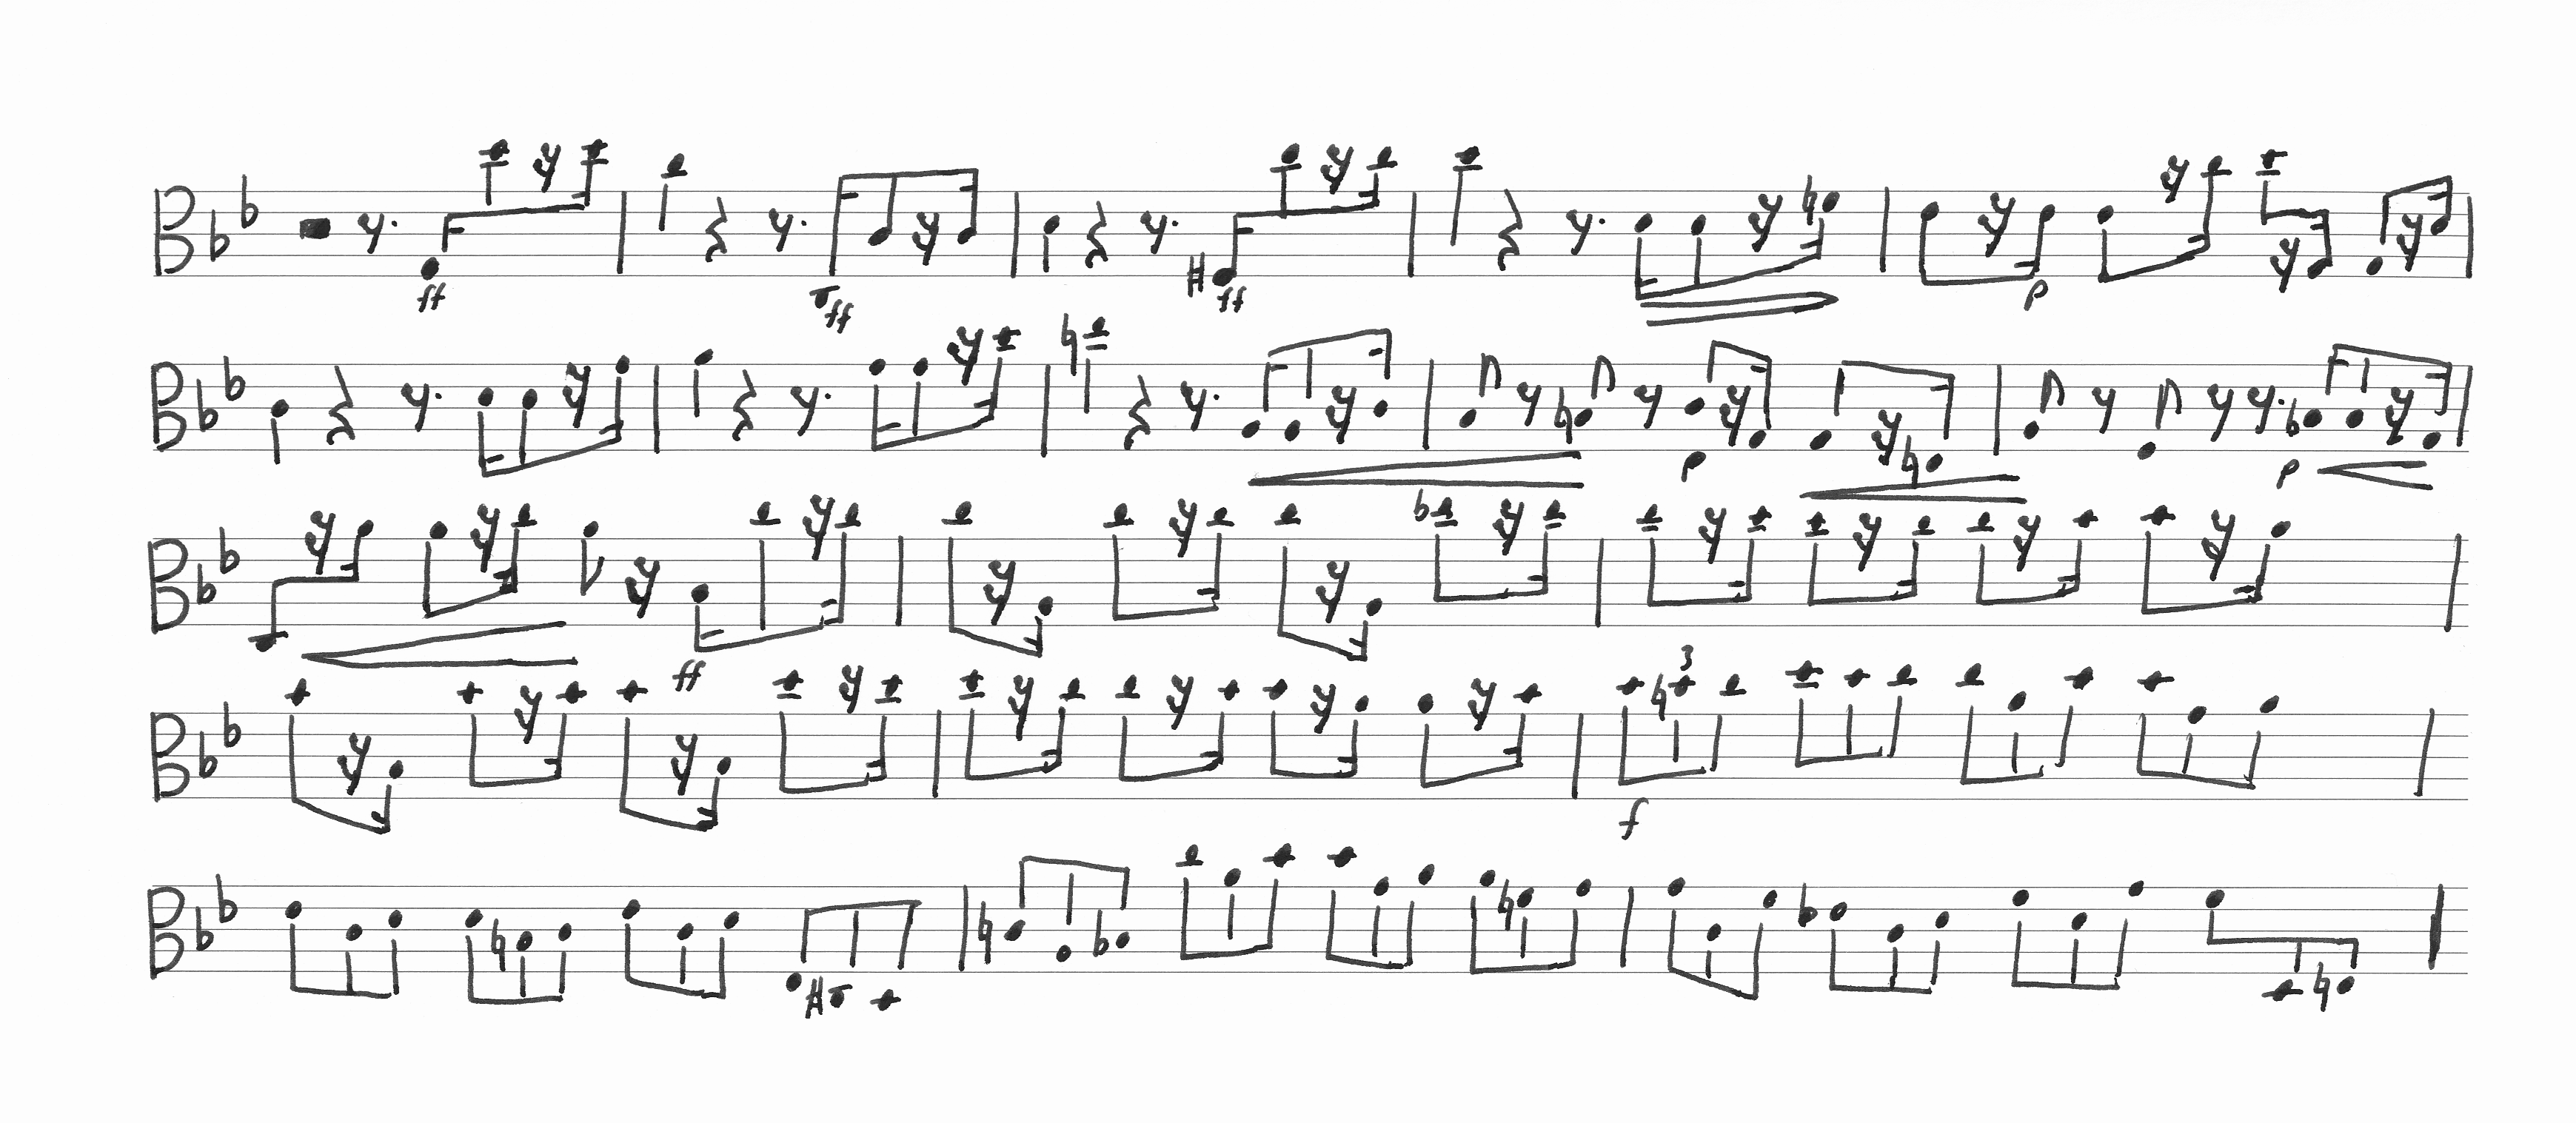 ff ff ff p
p p
ff
3
f